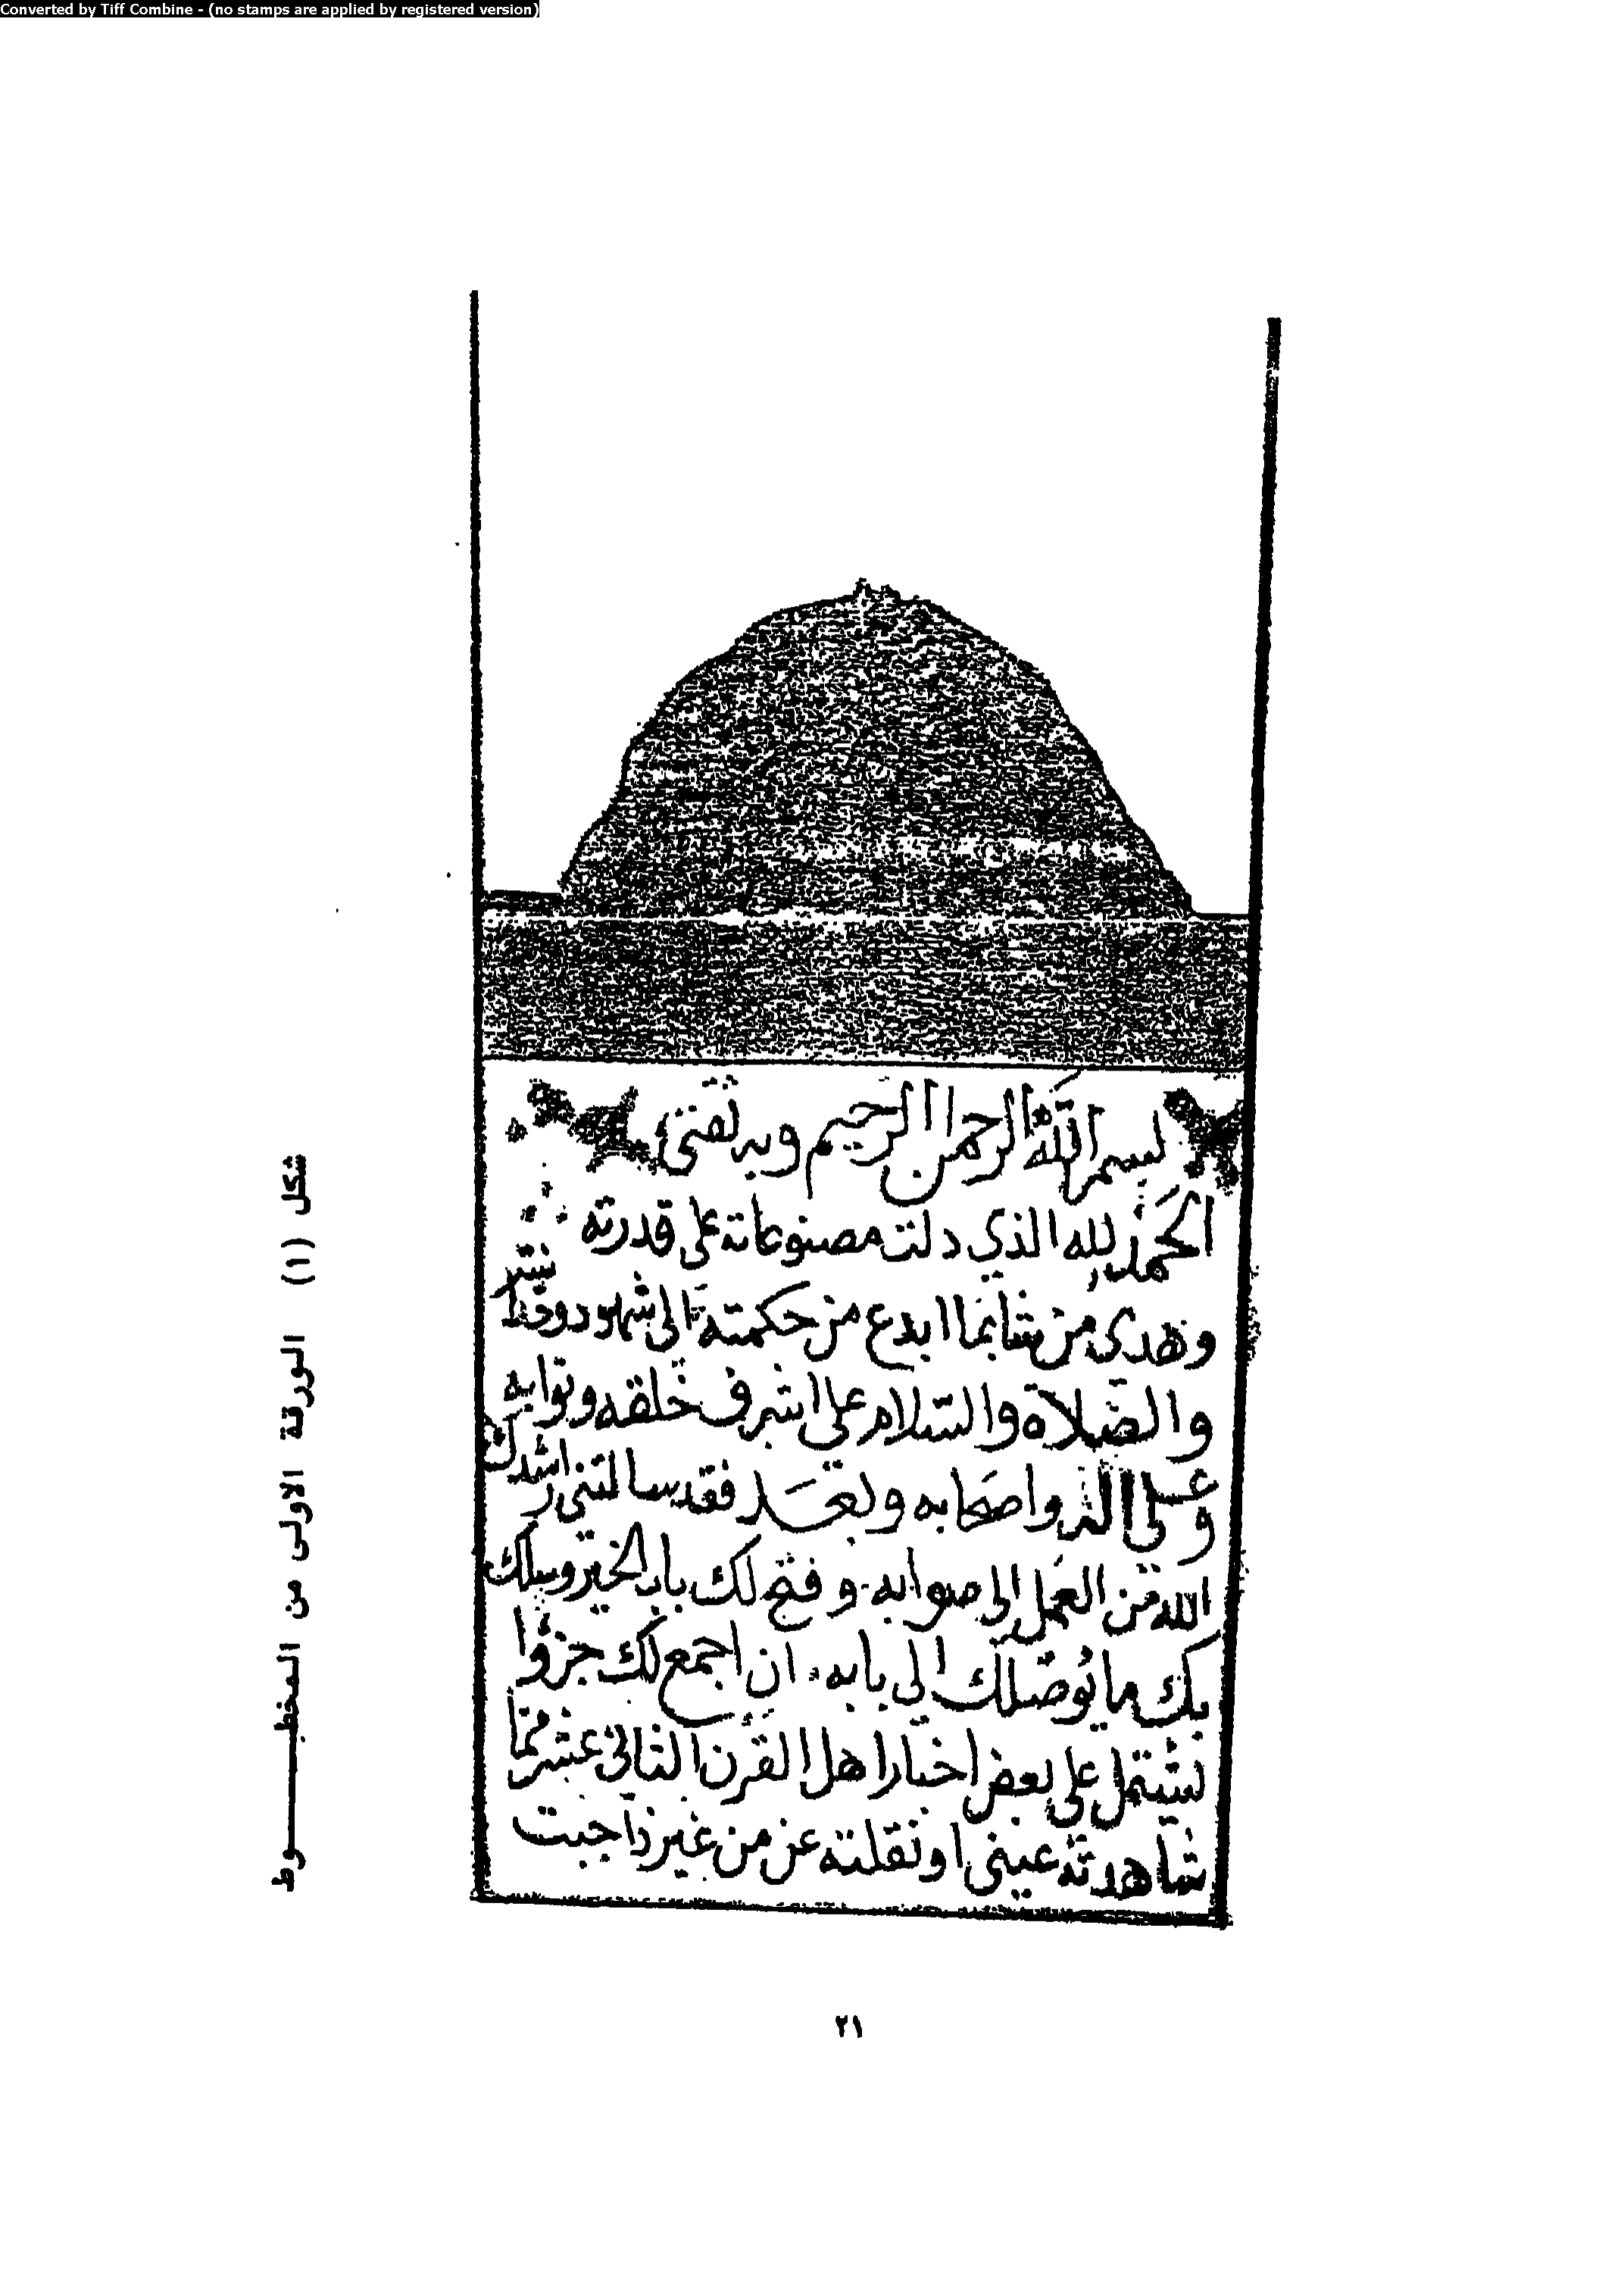 Converted by Tiff Combine - (no stamps are applied by registered version)
بسم الله الرحمن الرحيم وبه ثقتى
الحمد لله الذي دلت مصنوعاته على قدرته
وهدى من شا بما ابدع من حكمته الى شهود
والصلاة والسلام على اشرف خلقه
وعلى اله واصحابه وبعد فقد سالتنى ارشدك
الله من العمل الى صوابه وفتح لك باب الخير وسلك
بك ما يوصلك الى بابه ان اجمع لك جزوا
يشتمل على بعض اخبار اهل القرن الثانى عشر مما
شاهدته عينى او نقلته عن من غبر فاجبت
شكل (١) الورقة الاولى من المخطوط
٢١